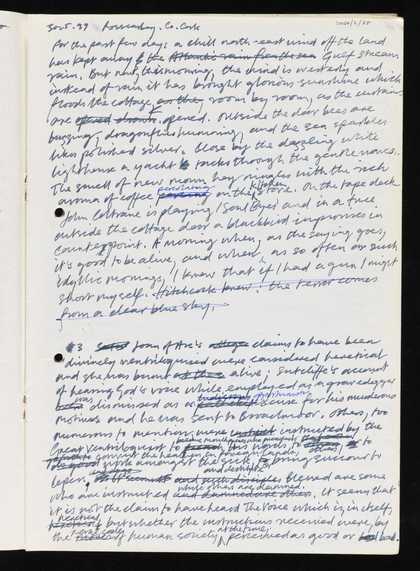 30.5.89 Roaring Co. Cork
For the past few days a chill north-east wind off the land
has kept away the Atlantic rain from the sea Gulf Stream
rain. But now, this morning, the wind is westerly and
instead of rain it has brought glorious sunshine which
floods the cottage, room by room, as the curtains
are opened. Outside the door bees are
buzzing, dragonflies humming, and the sea sparkles
like polished silver. Close by the dazzling white
lighthouse a yacht tacks through the gentle waves.
The smell of new mown hay mingles with the rich
aroma of coffee percolating on the kitchen stove. On the tape deck
John Coltrane is playing 'Soul Eyes' and in a tree
outside the cottage door a blackbird improvises in
counterpoint. A morning when, as the saying goes,
it's good to be alive, and when, as so often on such
idyllic mornings, I know that if I had a gun I might
shoot myself. Hitchcock knew: the terror comes
from a clear blue sky.
3 Joan of Arc's claims to have been
divinely ventriloquised were considered heretical
and she was burnt alive; Sutcliffe's account
of hearing God's voice while employed as a gravedigger
was dismissed as for his murderous
motives and he was sent to Broadmoor. Others, too
numerous to mention, were instructed by the
Great Ventriloquist to
good work amongst the sick, to bring succour to
lepers, Blessed are some
who are instructed and It seems that
it is not the claim to have heard The Voice which is, in itself,
heretical but whether the instructions received were, by
the human society at the time, perceived as good or bad.